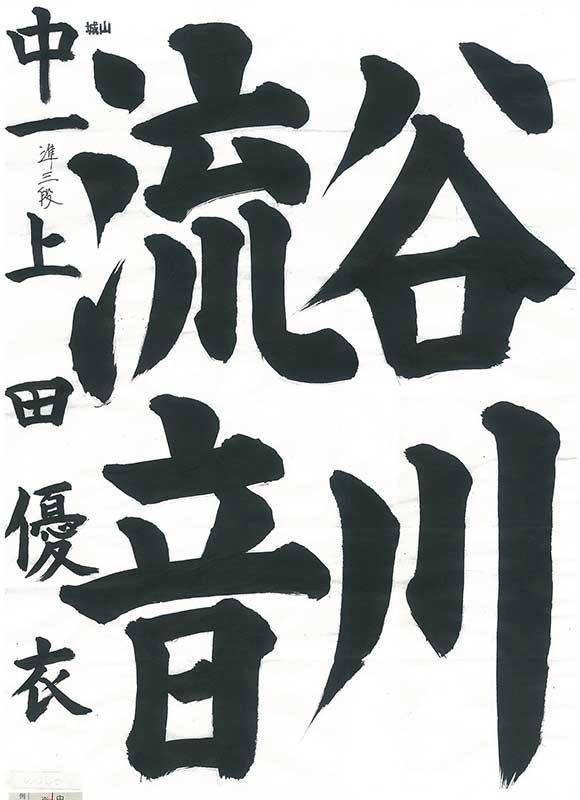 谷川
流音
城山
中一 上田優衣
準三段